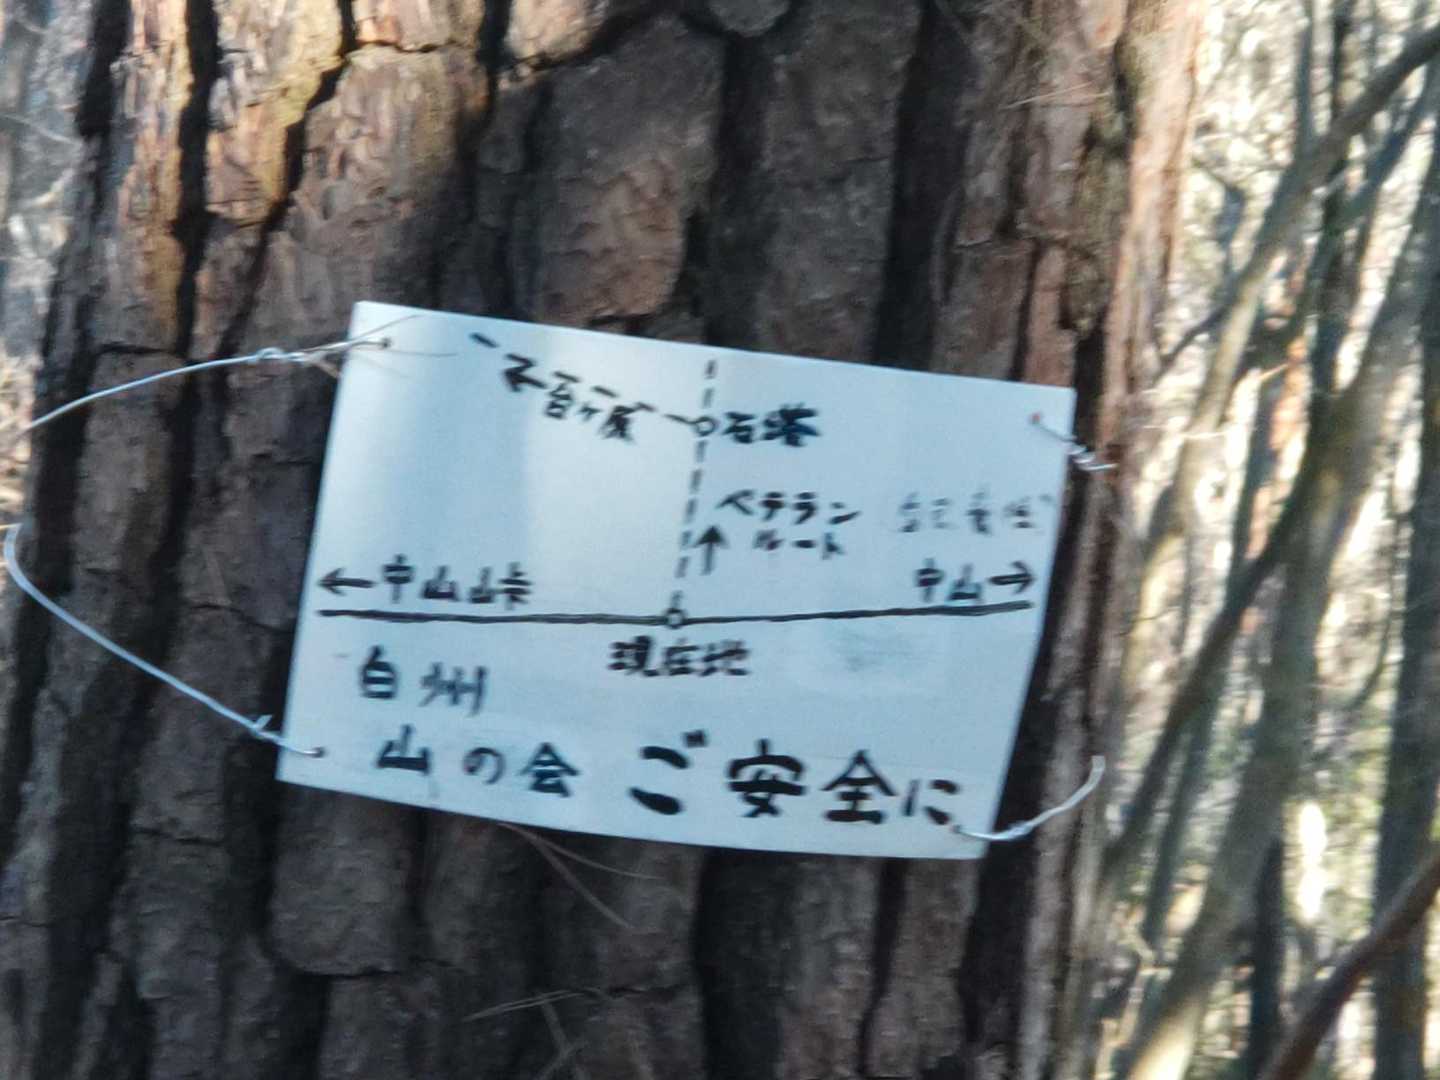 台ヶ原
石塔
ベテラン
ルート
←中山峠
中山→
現在地
白州
山の会 ご安全に